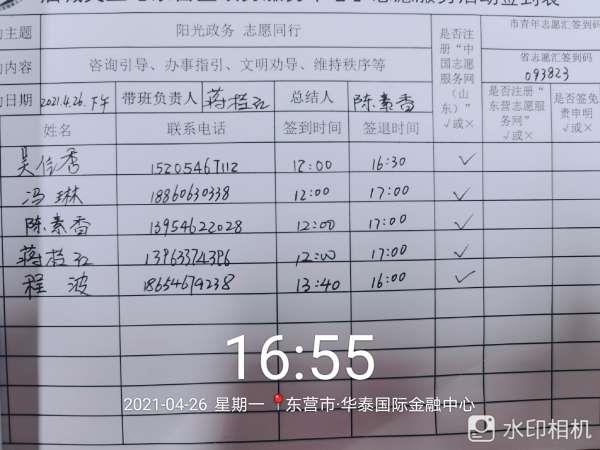 主题 阳光政务 志愿同行 是否注册“中国志愿服务网（山东）” √或× 市青年志愿汇签到码
内容 咨询引导、办事指引、文明劝导、维持秩序等 省志愿汇签到码 093823
日期 2021.4.26.下午 带班负责人 总结人 陈素香 是否注册“东营志愿服务网” √或× 是否签免责申明 √或×
姓名 联系电话 签到时间 签退时间
15205467112 12:00 16:30 ✓
冯琳 18860630338 12:00 17:00 ✓
陈素香 13954622028 12:00 17:00 ✓
12:00 17:00 ✓
程波 18654679238 13:40 16:00 ✓
16:55
2021-04-26 星期一 东营市·华泰国际金融中心
水印相机